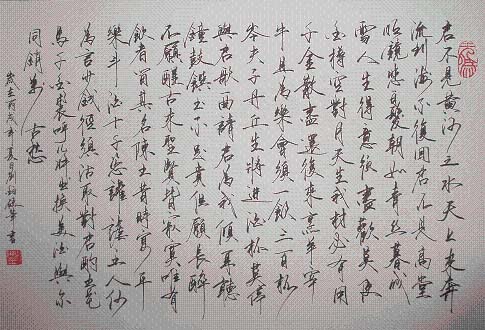 君不見黄河之水天上来奔
流到海不復回君不見高堂
明鏡悲白髮朝如青丝暮成
雪人生得意須盡歡莫使
金樽空對月天生我材必有用
千金散盡還復来烹羊宰
牛且為樂會須一飲三百杯
岑夫子丹丘生將進酒杯莫停
與君歌一曲請君為我傾耳聽
鐘鼓饌玉不足貴但願長醉
不願醒古来聖賢皆寂寞唯有
飲者留其名陳王昔時宴平
樂斗酒十千恣讙謔主人何
為言少錢徑須沽取對君酌五花
馬千金裘呼儿將出換美酒與尔
同銷萬古愁
歲在丙戌年夏月書